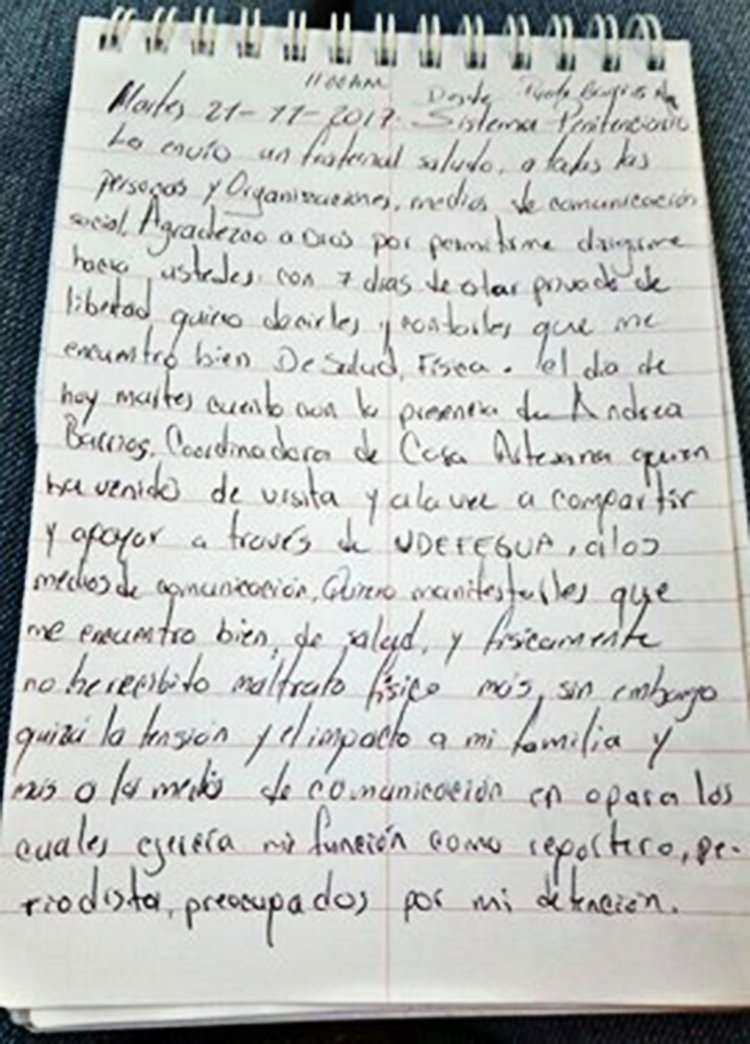 11:00AM
Martes 21-11-2017. Desde Puerto Barrios
Sistema Penitenciario
Lo envio un fraternal saludo, a todas las
personas y Organizaciones, medios de comunicación
social. Agradezco a Dios por permitirme dirigirme
hacia ustedes. con 7 dias de estar privado de
libertad quiero decirles y contarles que me
encuentro bien De Salud, Fisica. el dia de
hoy martes cuento con la presencia de Andrea
Barrios. Coordinadora de Casa Artesana quien
ha venido de visita y a la vez a compartir
y apoyar a través de UDEFEGUA, a los
medios de comunicación, Quiero manifestarles que
me encuentro bien, de salud, y fisicamente
no he recibito maltrato físico más, sin embargo
quizá la tensión y el impacto a mi familia y
más a los medios de comunicación en o para los
cuales ejercía mi función como reportero, pe-
riodista, preocupados por mi detención.